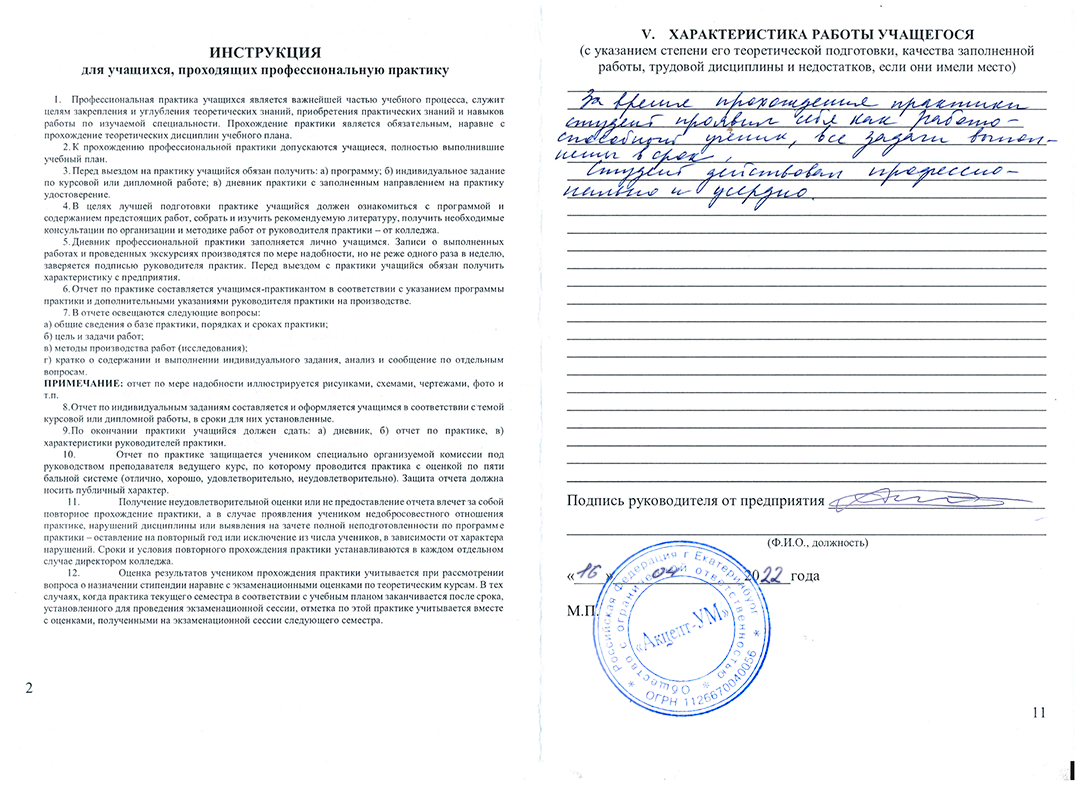 ИНСТРУКЦИЯ
для учащихся, проходящих профессиональную практику
1. Профессиональная практика учащихся является важнейшей частью учебного процесса, служит
целям закрепления и углубления теоретических знаний, приобретения практических знаний и навыков
работы по изучаемой специальности. Прохождение практики является обязательным, наравне с
прохождение теоретических дисциплин учебного плана.
2. К прохождению профессиональной практики допускаются учащиеся, полностью выполнившие
учебный план.
3. Перед выездом на практику учащийся обязан получить: а) программу; б) индивидуальное задание
по курсовой или дипломной работе; в) дневник практики с заполненным направлением на практику
удостоверение.
4. В целях лучшей подготовки практике учащийся должен ознакомиться с программой и
содержанием предстоящих работ, собрать и изучить рекомендуемую литературу, получить необходимые
консультации по организации и методике работ от руководителя практики – от колледжа.
5. Дневник профессиональной практики заполняется лично учащимся. Записи о выполненных
работах и проведенных экскурсиях производятся по мере надобности, но не реже одного раза в неделю,
заверяется подписью руководителя практик. Перед выездом с практики учащийся обязан получить
характеристику с предприятия.
6. Отчет по практике составляется учащимся-практикантом в соответствии с указанием программы
практики и дополнительными указаниями руководителя практики на производстве.
7. В отчете освещаются следующие вопросы:
а) общие сведения о базе практики, порядках и сроках практики;
б) цель и задачи работ;
в) методы производства работ (исследования);
г) кратко о содержании и выполнении индивидуального задания, анализ и сообщение по отдельным
вопросам.
ПРИМЕЧАНИЕ: отчет по мере надобности иллюстрируется рисунками, схемами, чертежами, фото и
т.п.
8. Отчет по индивидуальным заданиям составляется и оформляется учащимся в соответствии с темой
курсовой или дипломной работы, в сроки для них установленные.
9. По окончании практики учащийся должен сдать: а) дневник, б) отчет по практике, в)
характеристики руководителей практики.
10. Отчет по практике защищается учеником специально организуемой комиссии под
руководством преподавателя ведущего курс, по которому проводится практика с оценкой по пяти
бальной системе (отлично, хорошо, удовлетворительно, неудовлетворительно). Защита отчета должна
носить публичный характер.
11. Получение неудовлетворительной оценки или не предоставление отчета влечет за собой
повторное прохождение практики, а в случае проявления учеником недобросовестного отношения
практике, нарушений дисциплины или выявления на зачете полной неподготовленности по программе
практики – оставление на повторный год или исключение из числа учеников, в зависимости от характера
нарушений. Сроки и условия повторного прохождения практики устанавливаются в каждом отдельном
случае директором колледжа.
12. Оценка результатов учеником прохождения практики учитывается при рассмотрении
вопроса о назначении стипендии наравне с экзаменационными оценками по теоретическим курсам. В тех
случаях, когда практика текущего семестра в соответствии с учебным планом заканчивается после срока,
установленного для проведения экзаменационной сессии, отметка по этой практике учитывается вместе
с оценками, полученными на экзаменационной сессии следующего семестра.
2
V. ХАРАКТЕРИСТИКА РАБОТЫ УЧАЩЕГОСЯ
(с указанием степени его теоретической подготовки, качества заполненной
работы, трудовой дисциплины и недостатков, если они имели место)
За время прохождения практики
студент проявил себя как работо-
способный ученик, все задачи выпол-
нены в срок,
Студент действовал профессио-
нально и усердно.
Подпись руководителя от предприятия
(Ф.И.О., должность)
«16» 04 2022 года
М.П.
Российская Федерация г Екатеринбург
Общество с ограниченной ответственностью
«Акцепт-УМ»
ОГРН 1126670040056
11